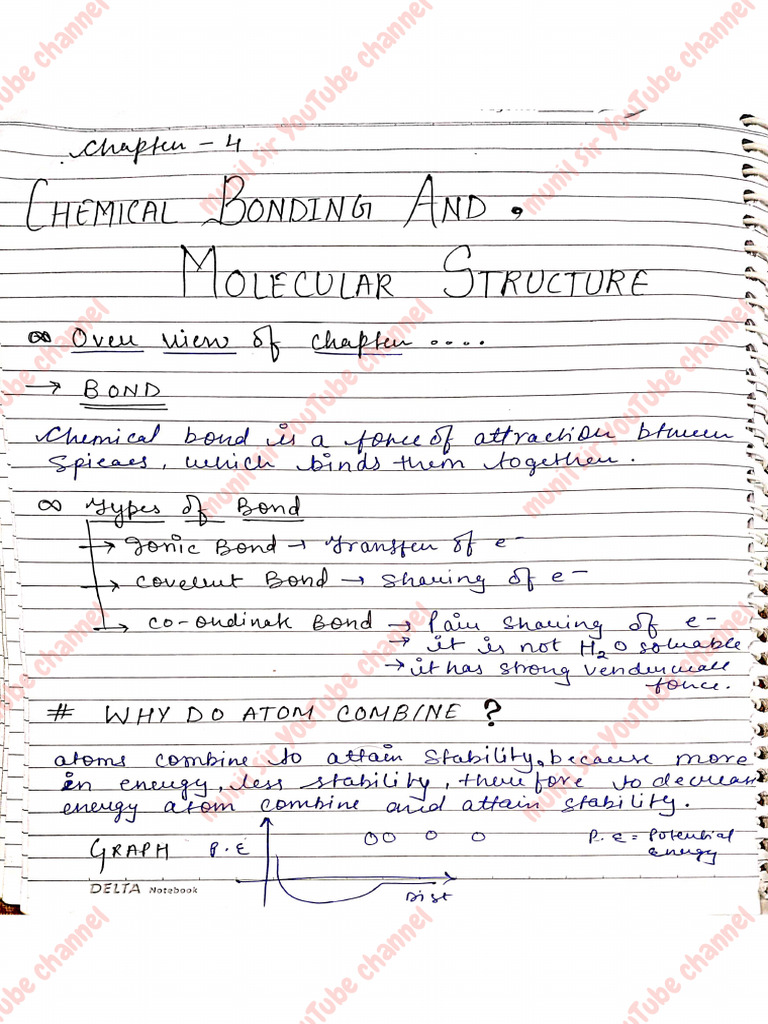 Chapter - 4
CHEMICAL BONDING AND
MOLECULAR STRUCTURE
∞ Over view of chapter ....
→ BOND
Chemical bond is a force of attraction btween
Spicaes, which binds them together.
∞ Types of Bond
→ Ionic Bond → Transfer of e−
→ Covelent Bond → Sharing of e−
→ Co-ordinate Bond → Pair sharing of e−
→ it is not H2O soluable
→ it has strong venderwall
force.
# WHY DO ATOM COMBINE ?
atoms combine to attain stability, because more
in energy, less stability, therefore to decrease
energy atom combine and attain stability.
GRAPH P.E P.E = Potential
Energy
Dist
DELTA Notebook
munil sir YouTube channel